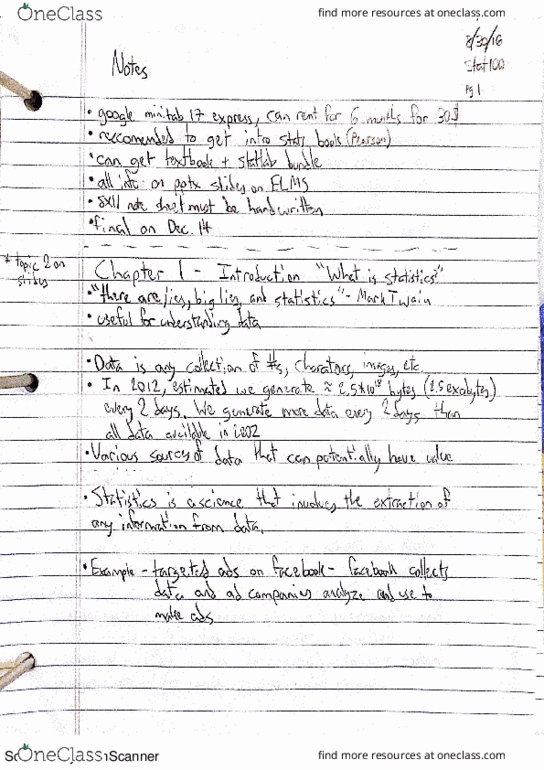 OneClass
find more resources at oneclass.com
8/30/16
Stat 100
Pg 1
Notes
• google minitab 17 express, can rent for 6 months for 30$
• reccomended to get intro stats book (Pearson)
• can get textbook + statlab bundle
• all info on pptx slides on ELMS
• 8x11 note sheet must be handwritten
• final on Dec. 14
* topic 2 on slides
Chapter 1 - Introduction "What is statistics?"
• "there are lies, big lies, and statistics" - Mark Twain
• useful for understanding data
• Data is any collection of #s, charators, images, etc.
• In 2012, estimated we generate ≈ 2.5*10¹⁸ bytes (2.5 exabytes)
every 2 days. We generate more data every 2 days than
all data available in 2002
• Various sources of data that can potentially have value
• Statistics is a science that involves the extraction of
any information from data.
• Example - targeted ads on facebook - facebook collects
data and ad companies analyze and use to
make ads
OneClass
Scanner
find more resources at oneclass.com